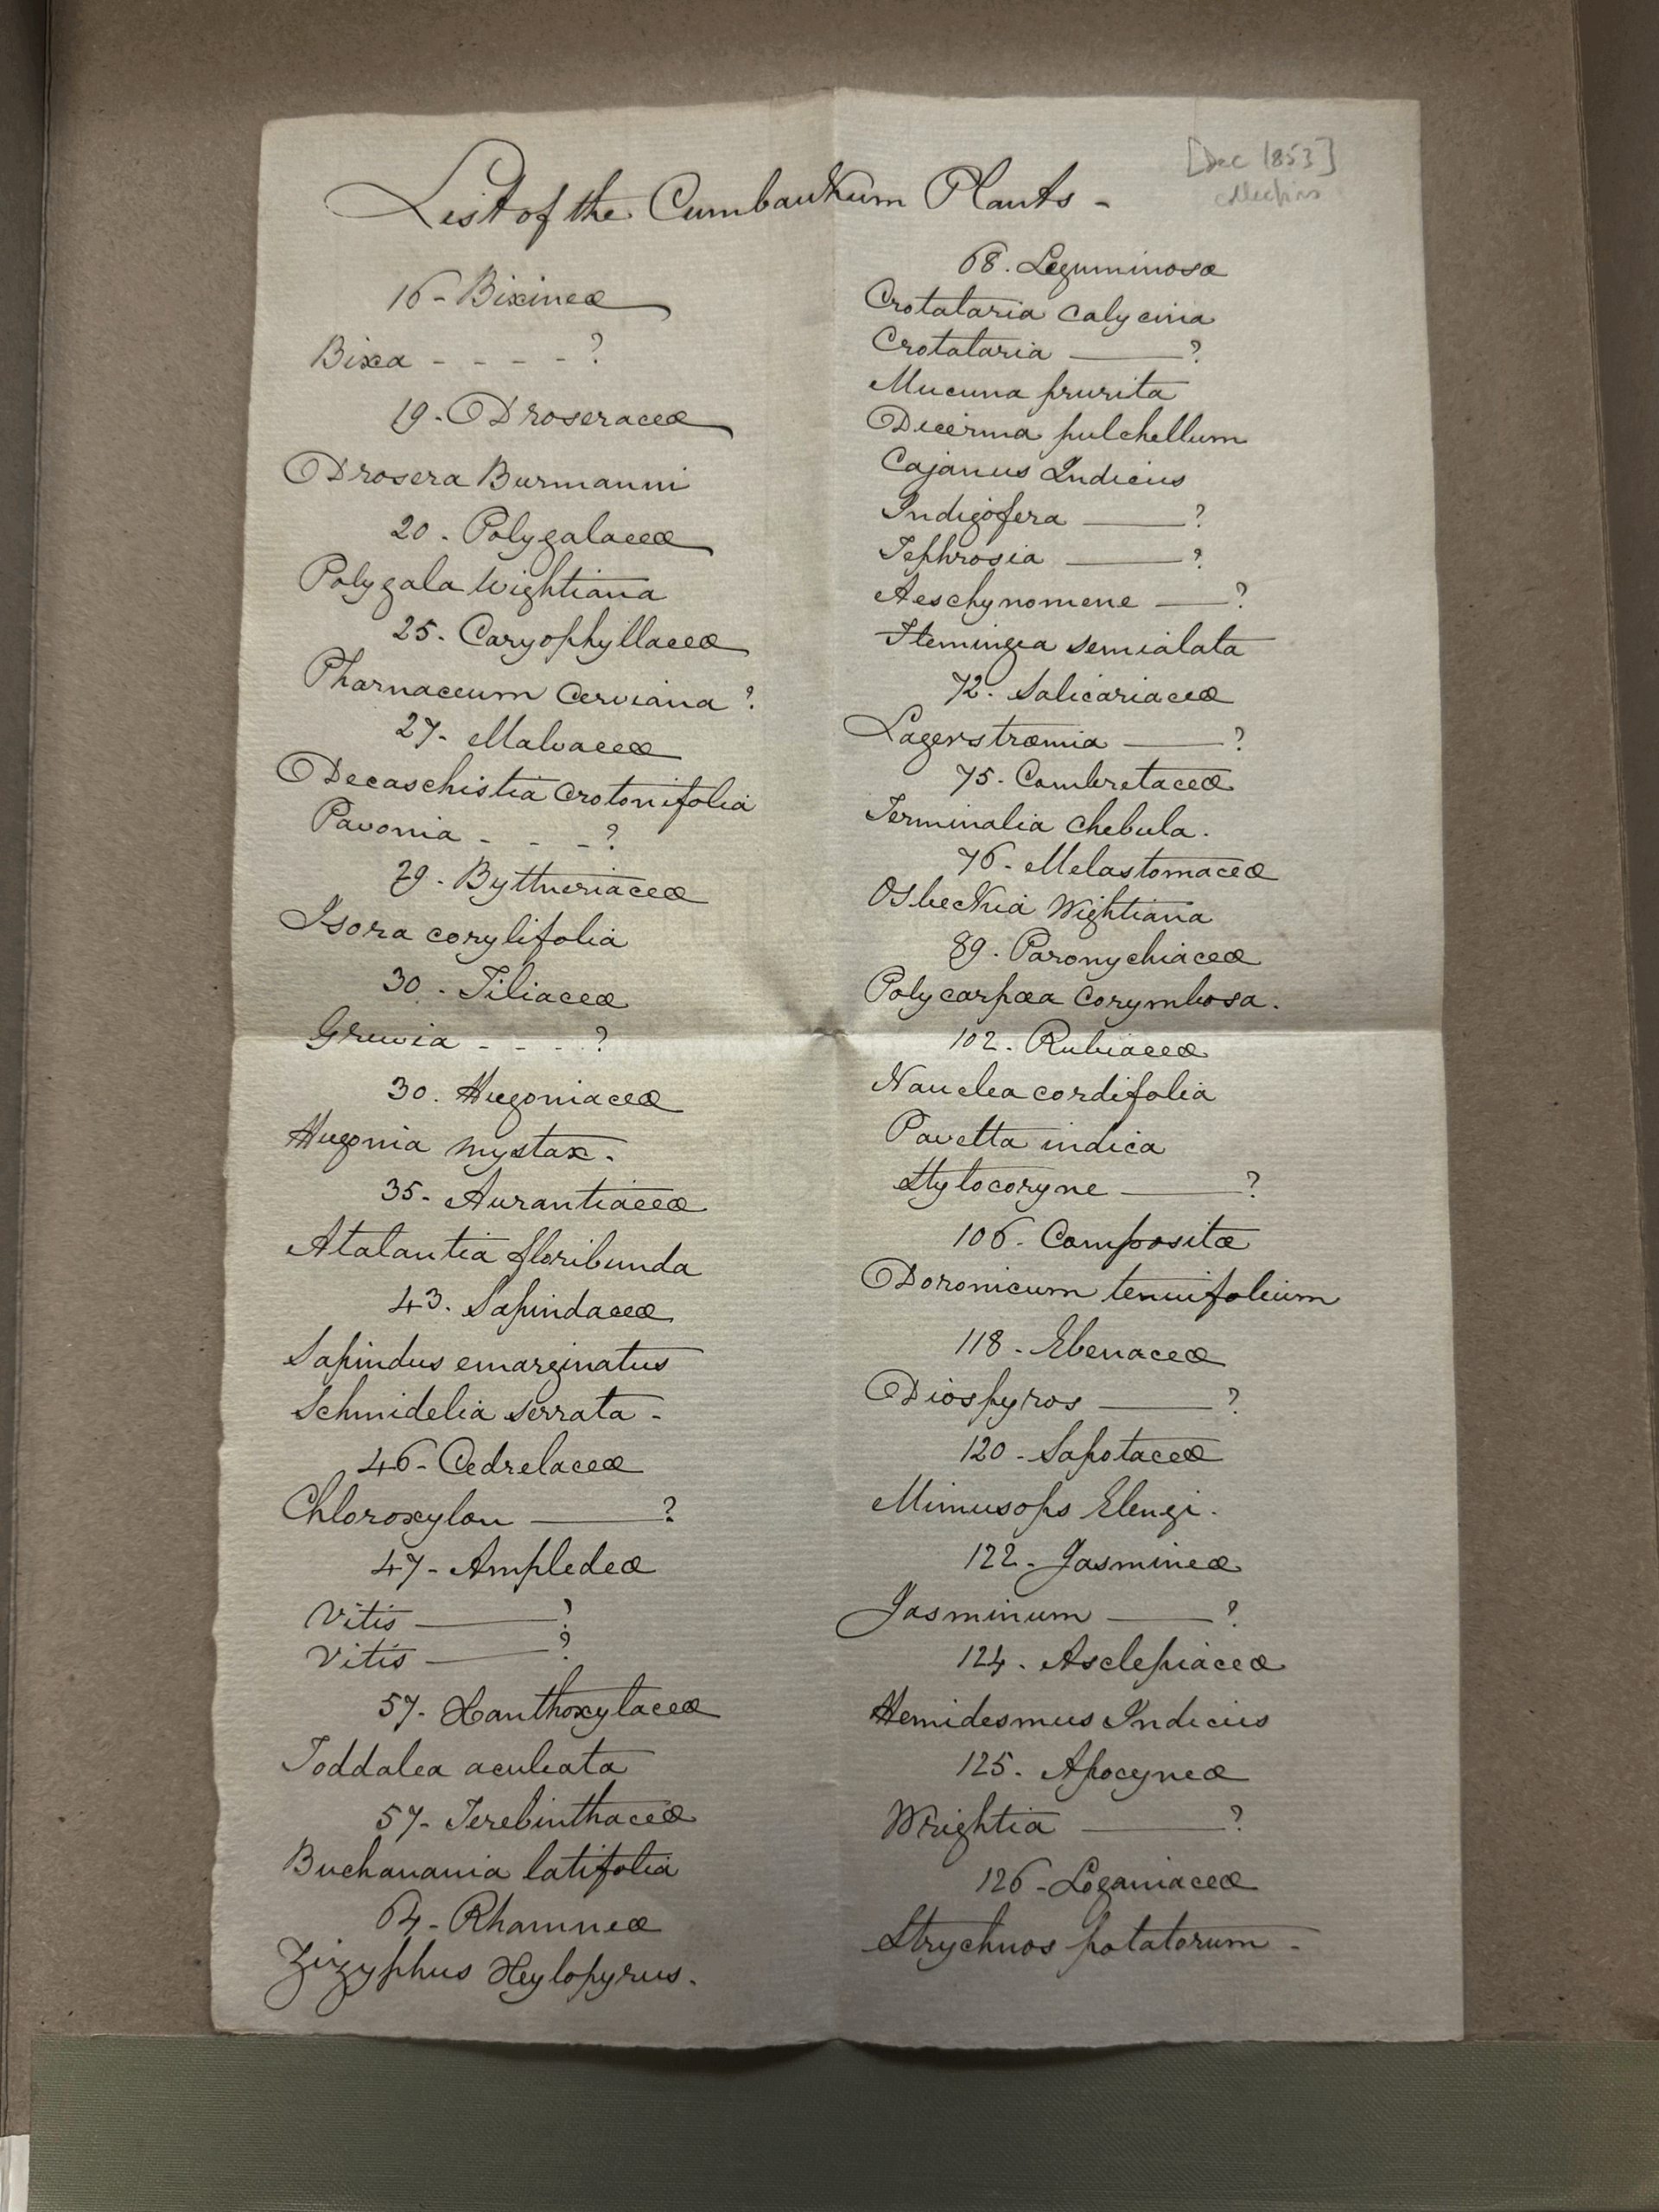 List of the Cumbaukum Plants -
[Dec 1853]
collections
16 - Bixineæ
Bixa - - - - ?
19 - Droseraceæ
Drosera Burmanni
20 - Polygalaceæ
Polygala Wightiana
25 - Caryophyllaceæ
Pharnaceum Cerviana ?
27 - Malvaceæ
Decaschistia Crotonifolia
Pavonia - - - ?
29 - Byttneriaceæ
Isora corylifolia
30 - Tiliaceæ
Grewia - - - ?
30. Hugoniaceæ
Hugonia mystax -
35 - Aurantiaceæ
Atalantia floribunda
43. Sapindaceæ
Sapindus emarginatus
Schmidelia serrata -
46 - Cedrelaceæ
Chloroxylon ——— ?
47 - Ampledeæ
Vitis ——— ?
Vitis ——— ?
57 - Xanthoxylaceæ
Toddalea aculeata
57 - Terebinthaceæ
Buchanania latifolia
64 - Rhamneæ
Zizyphus Xylopyrus.
68. Leguminosæ
Crotalaria calycina
Crotalaria ——— ?
Mucuna prurita
Dicerma pulchellum
Cajanus Indicus
Indigofera ——— ?
Tephrosia ——— ?
Aeschynomene —— ?
Flemingea semialata
72 - Salicariaceæ
Lagerstrœmia ——— ?
75 - Combretaceæ
Terminalia chebula.
76 - Melastomaceæ
Osbeckia Wightiana
89 - Paronychiaceæ
Polycarpæa Corymbosa.
102 - Rubiaceæ
Nauclea cordifolia
Pavetta indica
Stylocoryne ——— ?
106 - Compositæ
Doronicum tenuifolium
118 - Ebenaceæ
Diospyros ——— ?
120 - Sapotaceæ
Mimusops Elengi.
122 - Jasmineæ
Jasminum ——— ?
124 - Asclepiaceæ
Hemidesmus Indicus
125. Apocyneæ
Wrightia ——— ?
126 - Loganiaceæ
Strychnos potatorum -